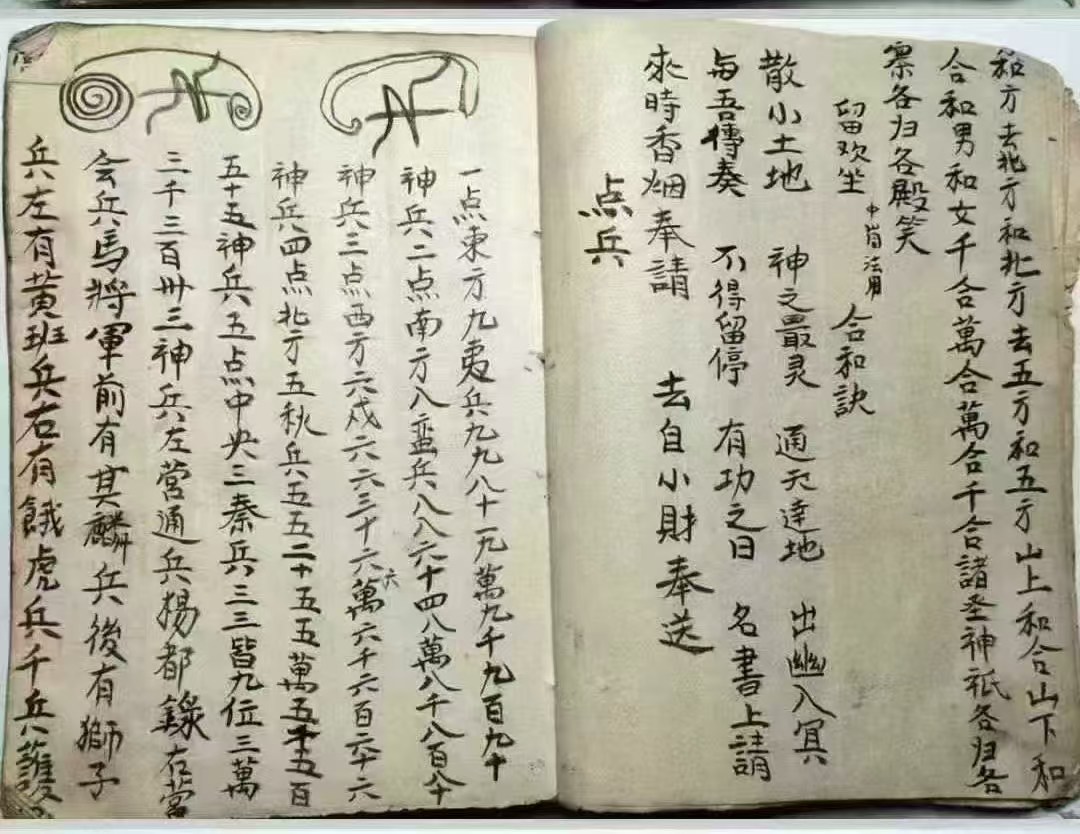 和方去北方和北方去五方和五方山上和合山下和
合和男和女千合萬合萬合千合諸圣神祇各归各
寨各归各殿笑
留欢坐 中肖法用 合和訣
散小土地 神之最灵 通天達地 出幽入冥
与吾傳奏 不得留停 有功之日 名書上請
來時香烟奉請 去自小財奉送
点兵
一点東方九夷兵九九八十一九萬九千九百九十
神兵二点南方八蛮兵八八六十四八萬八千八百八十
神兵三点西方六戎六六三十六六萬六千六百六十六
神兵四点北方五秋兵五五二十五五萬五千五百
五十五神兵五点中央三秦兵三三皆九位三萬
三千三百卅三神兵左营通兵楊都錄右营
会兵馬將軍前有其麟兵後有獅子
兵左有黄班兵右有餓虎兵千兵護